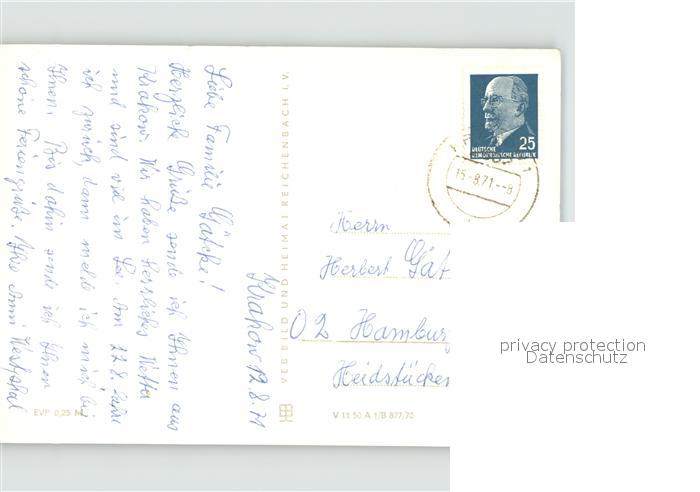 Krakow 12.8.71
Liebe Familie Gätcke!
Herzliche Grüße sende ich Ihnen aus
Krakow. Wir haben herrliches Wetter
und sind viel im See. Am 22.8. fahre
ich zurück, dann melde ich mich bei
Ihnen. Bis dahin sende ich Ihnen
schöne Feriengrüße. Ihre Anni Westphal
EVP 0,25 M
VEB BILD UND HEIMAT REICHENBACH I. V.
25
DEUTSCHE
DEMOKRATISCHE REPUBLIK
15.-8.71.--8
Herrn
Herbert Gät
02 Hamburg
Heidstücken
V 11 50 A 1/B 877/70
privacy protection
Datenschutz